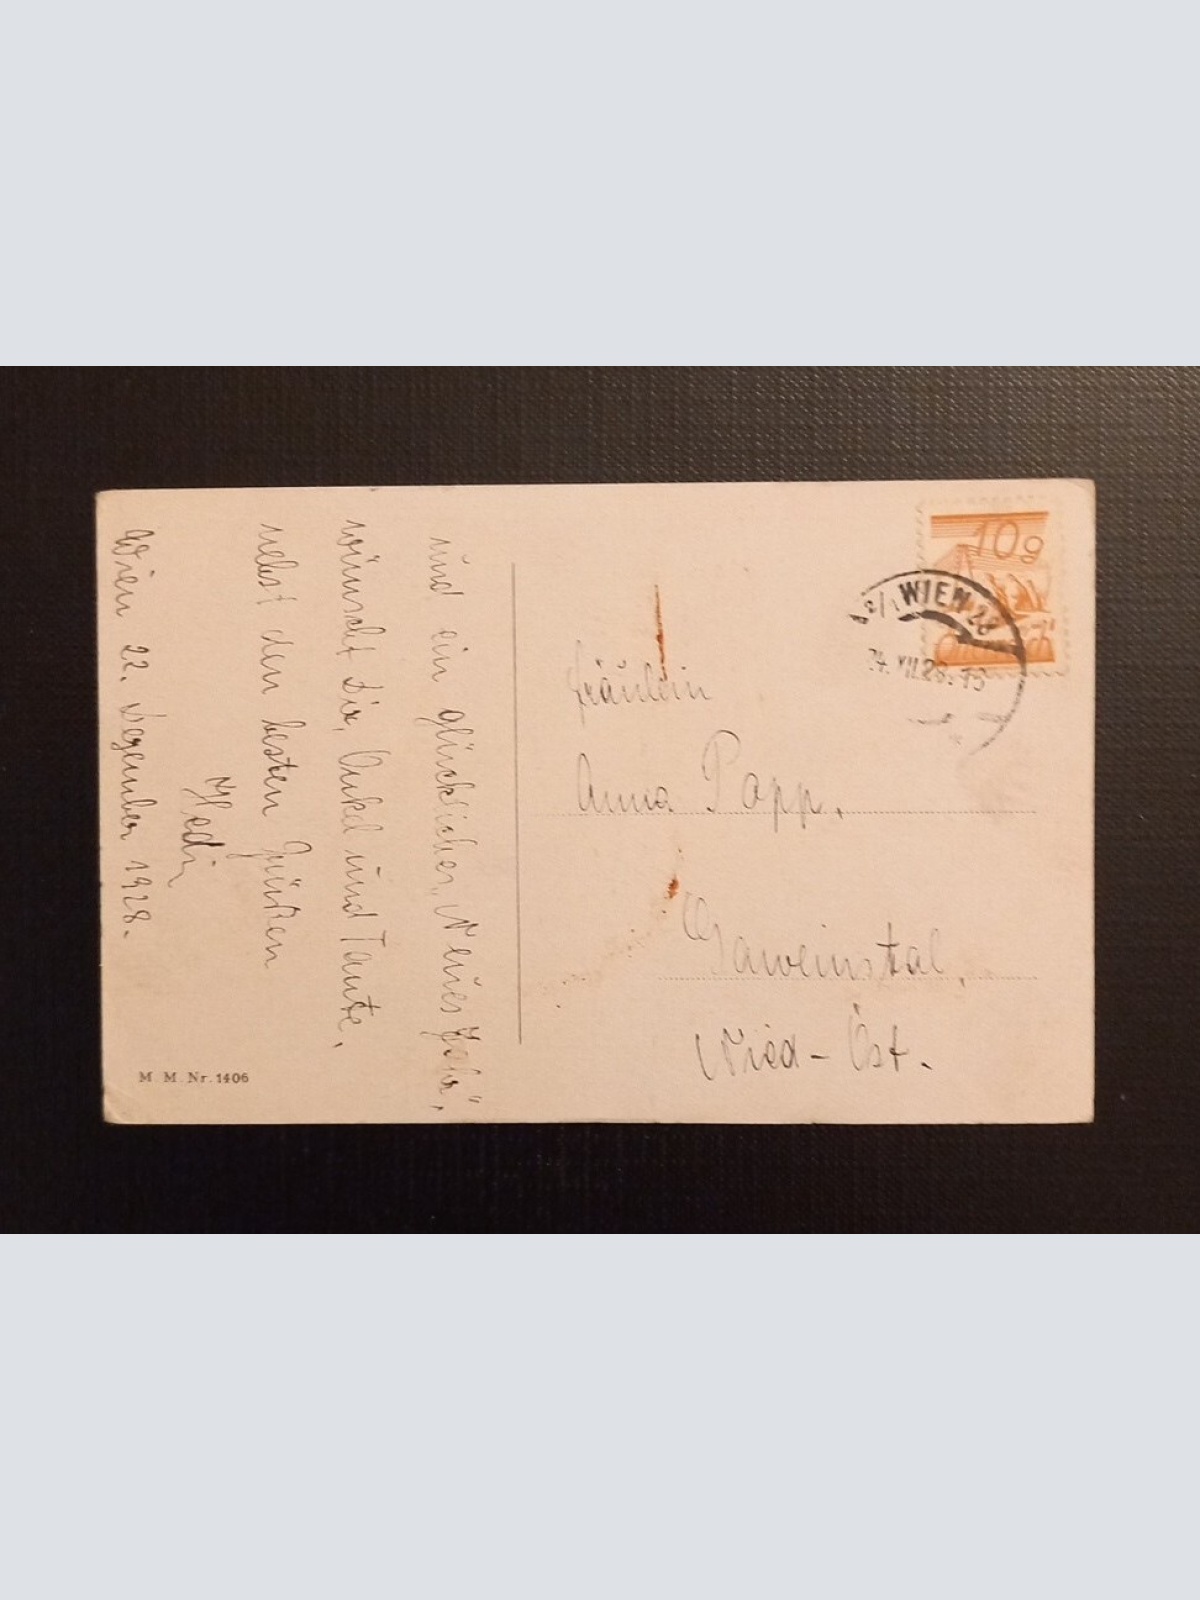 und ein glückliches „Neues Jahr",
wünscht Dir, Onkel und Tante,
nebst den besten Grüßen
Hedi
Wien 22. Dezember 1928.
M. M. Nr. 1406
10g
WIEN
XII.28.
Fräulein
Anna Popp.
Gaweinstal,
Nied-Öst.